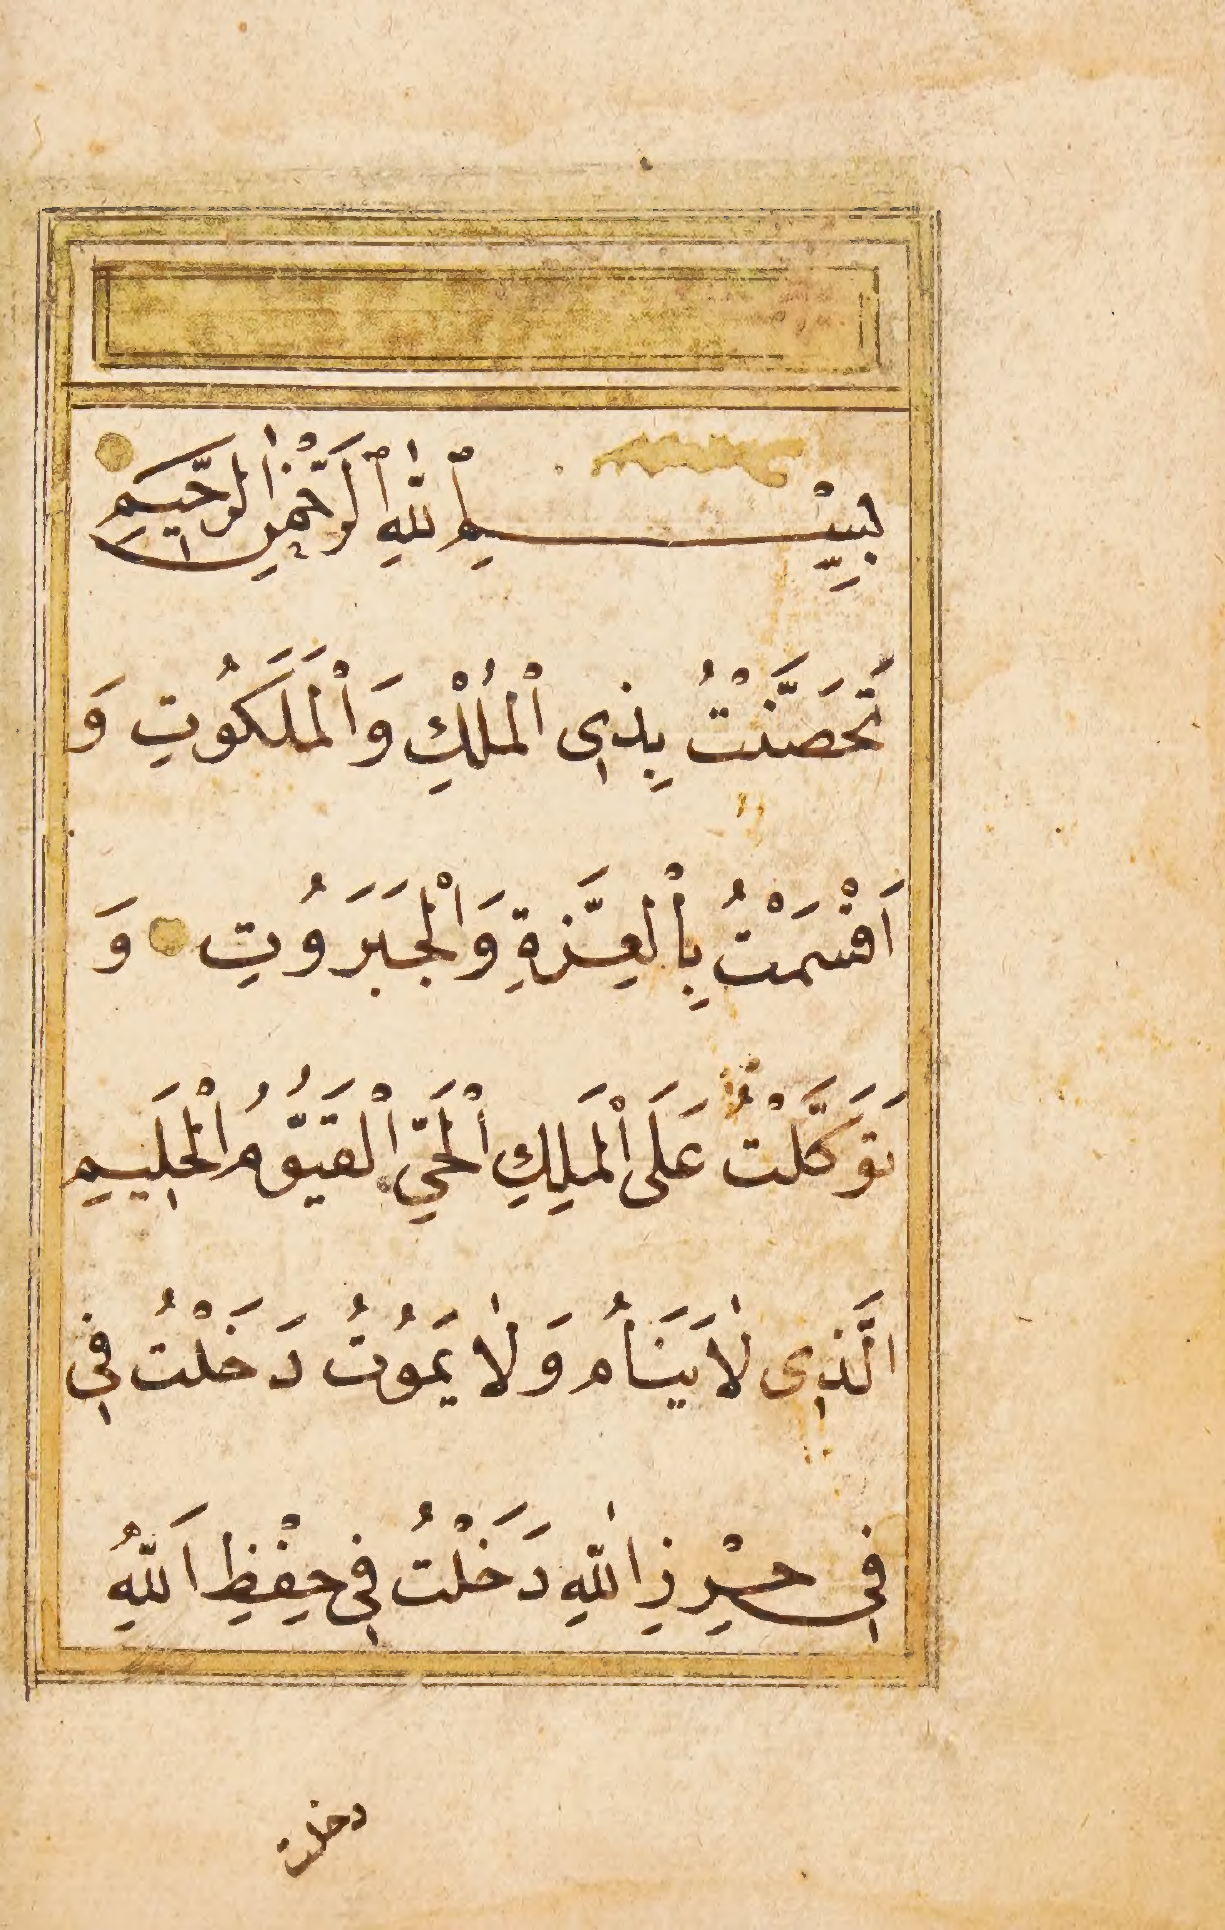 بِسْــــــمِ اللّٰهِ الرَّحْمٰنِ الرَّحِيمِ
تَحَصَّنْتُ بِذِى الْمُلْكِ وَالْمَلَكُوتِ وَ
اَقْسَمْتُ بِالْعِزَّةِ وَالْجَبَرُوتِ وَ
تَوَكَّلْتُ عَلَى الْمَلِكِ الْحَيِّ الْقَيُّومُ الْحَلِيمِ
الَّذِى لَا يَنَامُ وَلَا يَمُوتُ دَخَلْتُ فِي
فِي حِرْزِ اللّٰهِ دَخَلْتُ فِي حِفْظِ اَللّٰهِ
دخلت